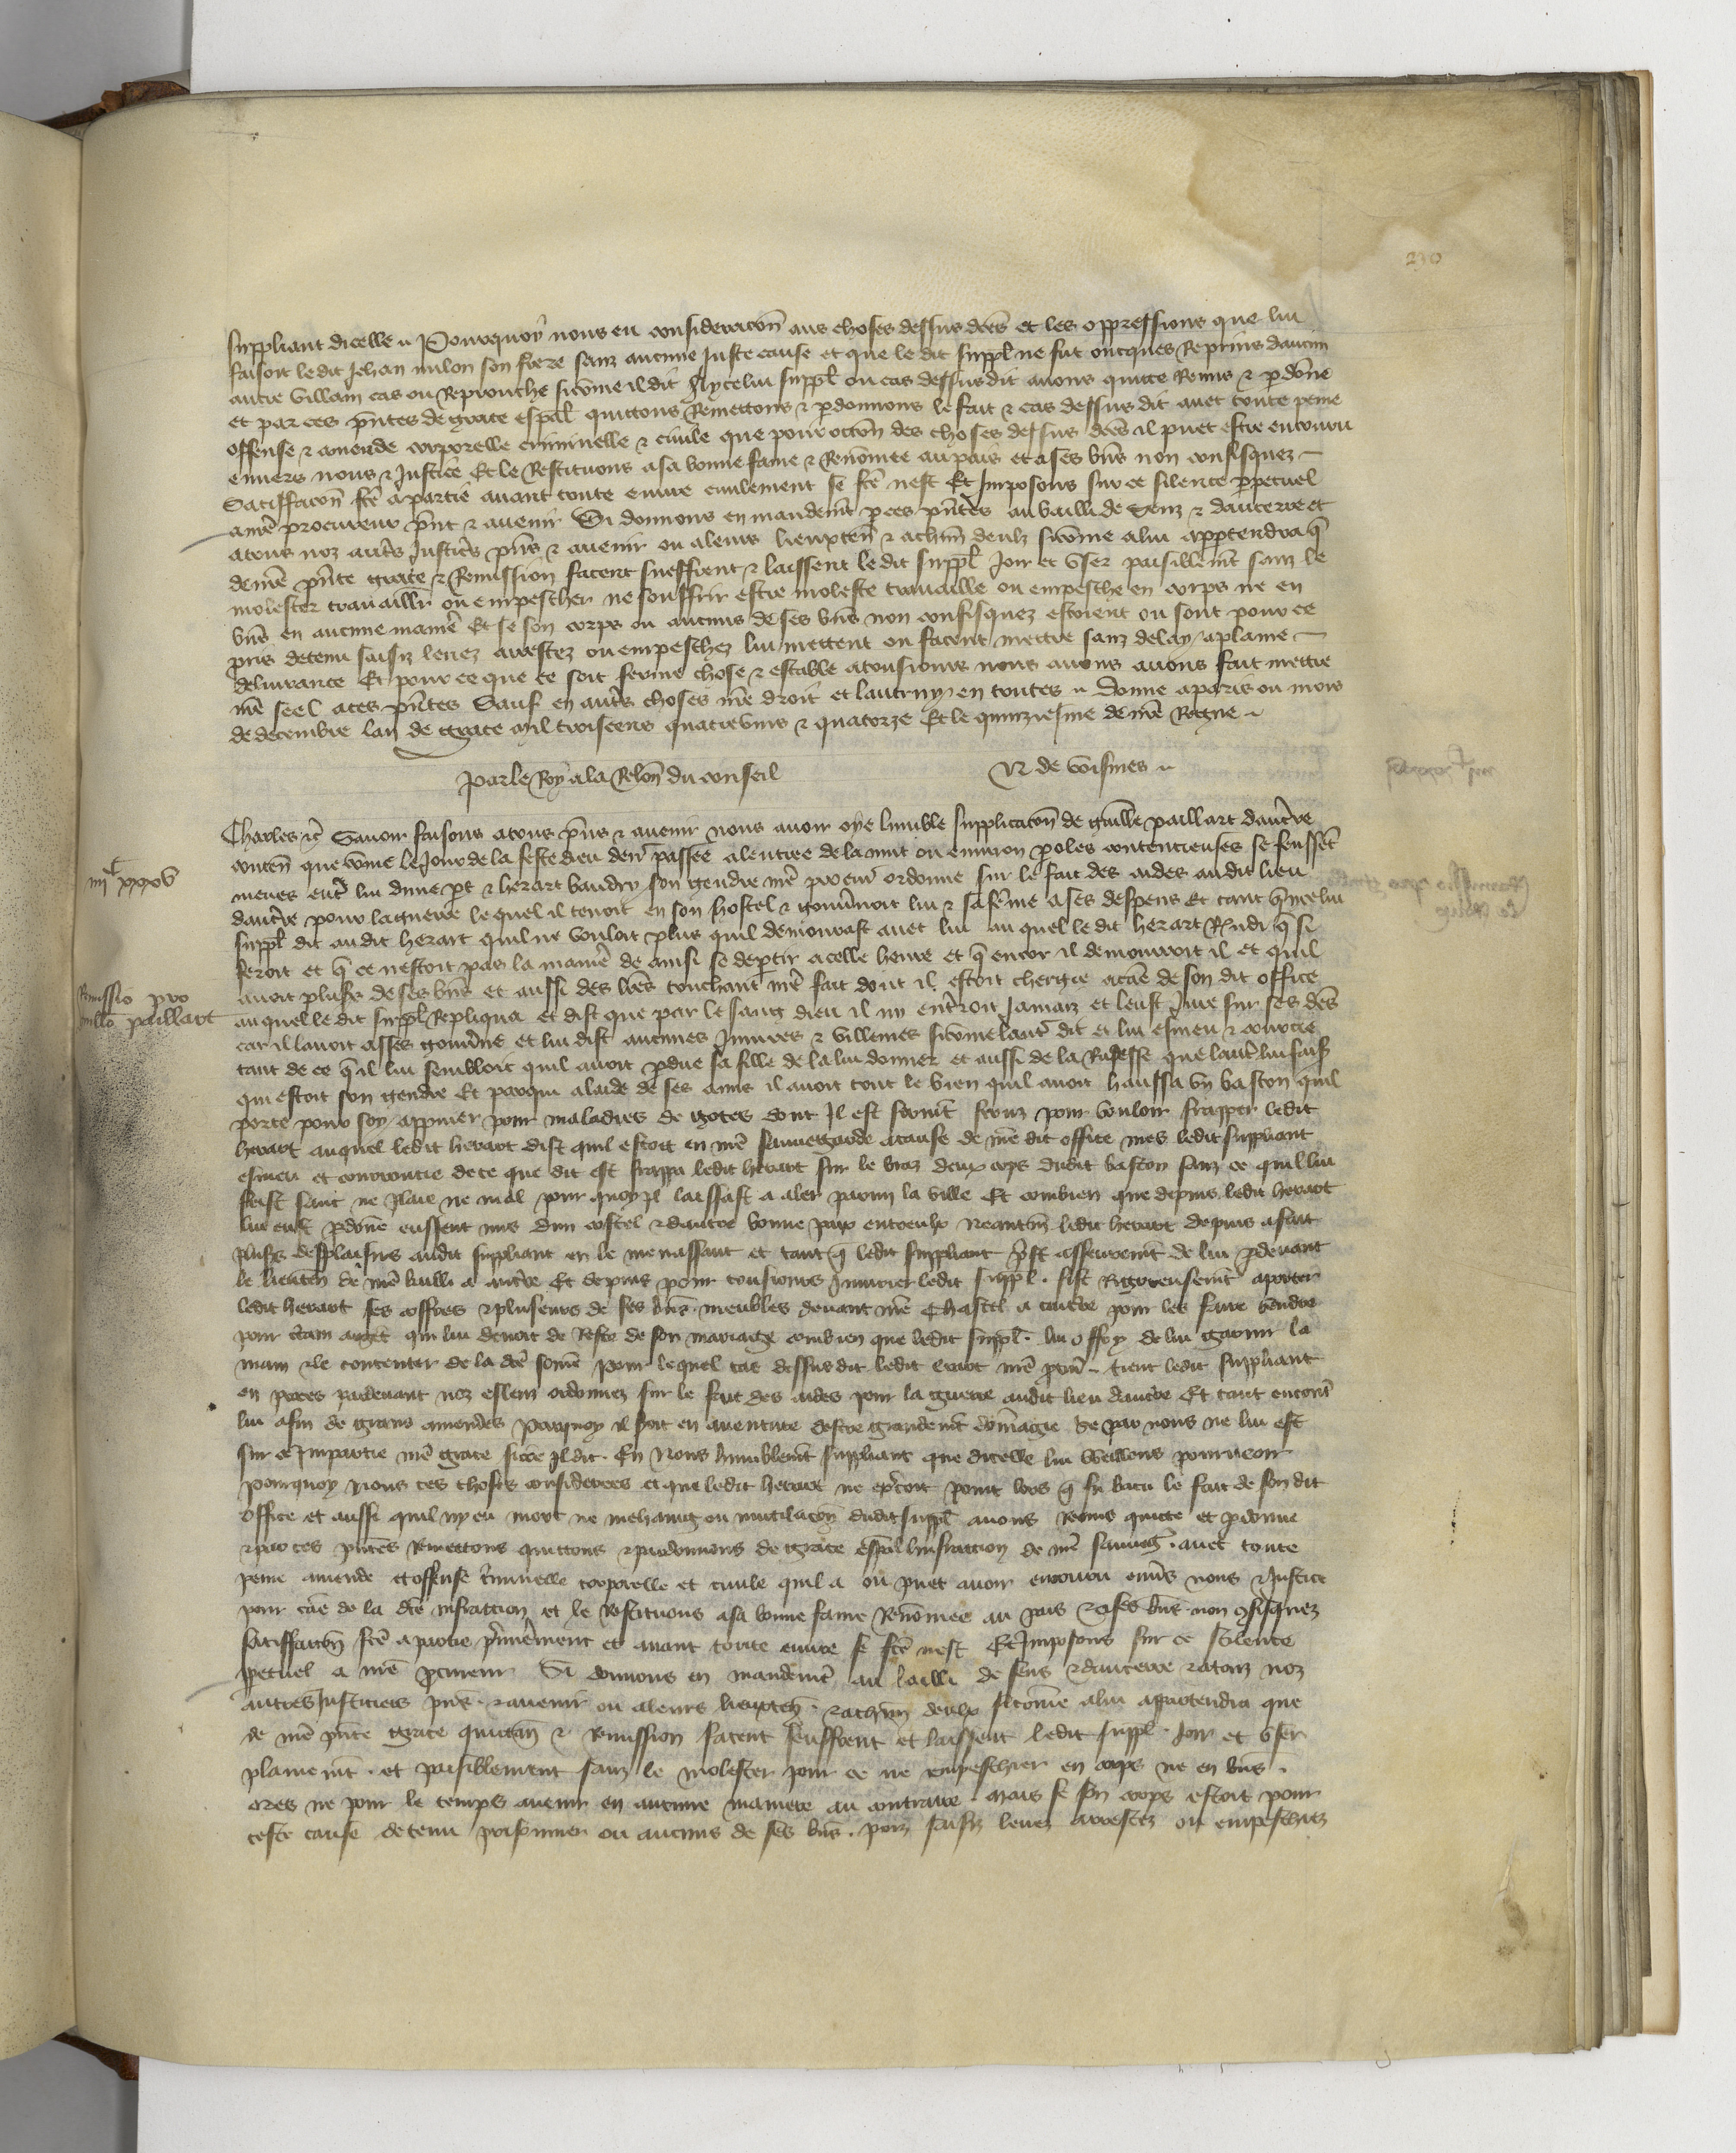 230
suppliant dicelle Pourquoy nous eu consideracon aus choses dessus dces et les oppressions que lui
faisoit ledit Jehan milon son frere sanz aucune Juste cause et que le dit suppl ne fut oncques Reprins daucun
autre villain cas ou Reprouche sicome il dit A ycelui suppl ou cas dessusdit avons quicte Remis & pdone
et par ces pntes de grace espal quittons Remettons & pdonnons le fait & cas dessus dit avec toute peine
offense & amende corporelle criminelle & civile que pour occon des choses dessus dces il puet estre encouru
envers nous & Justice Et le Restituons a sa bonne fame & Renomee au pais et a ses bns non confisquez
Satisfacon fce a partie avant toute euvre civilement se fce nest Et Imposons sur ce silence ppetuel
a nre procureur pnt & avenir Si donnons en mandemt p ces pntes au bailli de Senz & daucerre et
a tous noz autrs Justics pns & avenir ou a leurs lieuxten & a chm deulx sicome a lui apptendra q
de nre pnte grace & Remission facent sueffrent & laissent le dit suppl Joir et user paisiblemt sanz le
molester travaillir ou empescher ne souffrir estre moleste travaille ou empesche en corps ne en
bns en aucune maniere Et se son corps ou aucuns de ses bns non confisquez estoient ou sont pour ce
pris detenu saisiz levez arrestez ou empeschez lui mettent ou facent mettre sanz delay a plaine
delivrance Et pour ce que ce soit ferme chose & estable a tousiours nous avons avons fait mettre
nre seel a ces pntes Sauf en autrs choses nre droit et lautruy en toutes Donne a paris ou mois
de decembre lan de grace mil troiscens quatrevins & quatorze Et le quinziesme de nre Regne
Par le Roy a la Relon du conseil N de voisines
iiijc xxxv
Charles &c Savoir faisons a tous pns & avenir nous avoir oye lumble supplicacon de guille paillart daucrre
conten que come le Jour de la feste dieu denr passee a lentree de la nuit ou environ poles contencieuses se feussent
meues entr lui dune pt & herart baudry son gendre nre procur ordonne sur le fait des aides audit lieu
daucrre pour la guerre lequel il tenoit en son hostel & gouvnoit lui & sa feme a ses despens Et tant q icelui
suppl dit audit herart quil ne vouloit plus quil demourast avec lui auquel le dit herart Rndi q si
feroit et q ce nestoit pas la maniere de ainsi se deptir a celle heure et q encor il demourroit il et quil
avoit plusrs de ses bns et aussi des lres touchant nre fait dont il estoit chergie a cae de son dit office
Remissio pro
Guillo paillart
auquel le dit suppl Repliqua et dist que par le sang dieu il ny entrroit Jamaiz et leust Jure sur ses des
car il lavoit asses gouvne et lui dist aucunes Jniures & villenies sicome lautr dit et lui esmeu & courrcie
tant de ce q il lui sembloit quil avoit pdue sa fille de la lui donner et aussi de la Rudesse que lautr lui fais
qui estoit son gendre Et par qui a laide de ses amis il avoit tout le bien quil avoit haussa un baston quil
porte pour soy appuier pour maladies de gotes dont Jl est souvent feruz pour vouloir frapper ledit
herart auquel ledit herart dist quil estoit en nre sauvegarde a cause de nre dit office mes ledit suppliant
esmeu et courroucie de ce que dit est frappa ledit herart sur le braz deux cops dudit baston sanz ce quil lui
feist sanc ne plaie ne mal pour quoy Jl laissast a aler parmi la ville Et combien que depuis ledit herart
lui eust pdone eussent mis dun costel & dautre bonne paix entreulx Neantm ledit herart depuis a fait
plusrs desplaisirs audit suppliant en le menassant et tant q ledit suppliant prist asseuremt de lui pdevant
le lieuten de nre bailli a aucrre Et depuis pour tousiours Jniurier ledit suppl fist Rigoreusemt aporter
ledit herart ses coffres & pluseurs de ses bns meubles devant nre Chastel a aucrre pour les faire vendre
pour ctain argt qui lui devoit de Reste de son mariaige combien que ledit suppl lui offry de lui garnir la
main & le contenter de la dce some Pour lequel cas dessusdit ledit herart nre pcur tient ledit suppliant
en proces pardevant noz esleuz ordonnez sur le fait des aides pour la guerre audit lieu daucrre Et tant encontr
lui a fin de grans amendes Parquoy il soit en aventure destre grandemt domagie se par nous ne lui est
sur ce Jmpartie nre grace sicoe Jl dit En Nous humblemt suppliant que dicelle lui vueillons pourveoir
Pourquoy Nous ces choses considerees et que ledit herart ne exrcoit point lors q fu batu le fait de son dit
office et aussi quil ny eu mort ne mehaing ou mutilacon dudit suppl avons Remis quicte et pdonne
& par ces pntes Remettons quittons & pardonnons de grace espal linfraction de nre sauveg avec toute
peine amende & offense crimielle corporelle et civile quil a ou puet avoir encouru envs nous & Justice
pour cae de la dce infraction et le Restituons a sa bonne fame Renomee au pais & a ses bns non cfisquez
satisfacon fce a partie primerement et avant toute euvre se fce nest Et Jmposons sur ce silence
ppetuel a nre pcureur Si donnons en mandemt au bailli de sens & daucerre & a touz noz
autres Justiciers pns & avenir ou a leurs lieuxten & a chm deulx sicome a lui appartendra que
de nre pnte grace quictan & Remission facent seuffrent et laissent ledit suppl Joir et user
plainemt et paisiblement sanz le molester pour ce ne empeschier en corps ne en bns
ores ne pour le temps avenir en aucune maniere au contraire Mais se son corps estoit pour
ceste cause detenu prisonnier ou aucuns de ses bns pris saisiz levez arrestez ou empeschiez